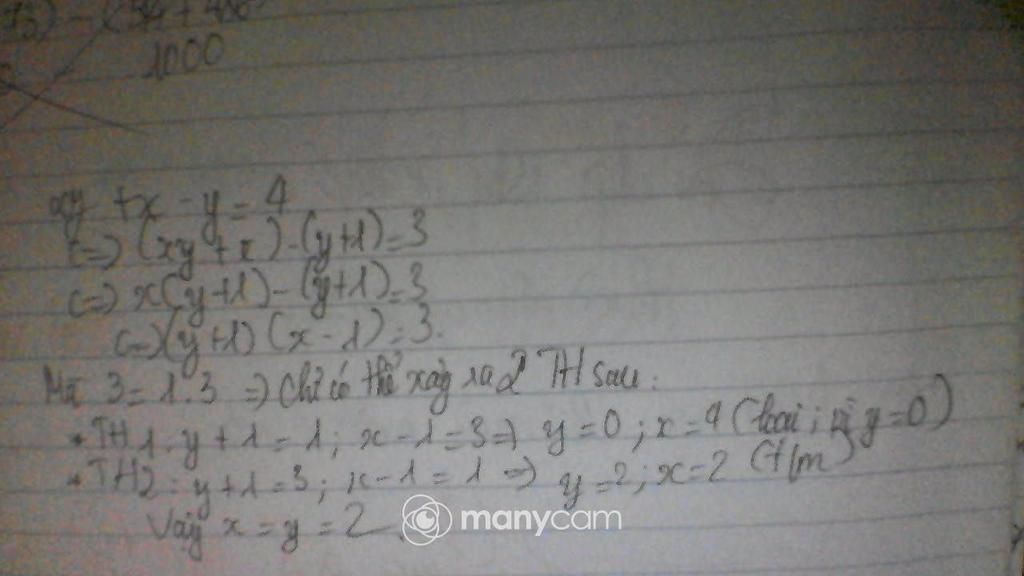 1000
xy + x - y = 4
<=> (xy + x) - (y+1) = 3
<=> x(y+1) - (y+1) = 3
<=> (y+1) (x - 1) = 3.
Mà 3 = 1.3 => chỉ có thể xảy ra 2 TH sau:
* TH1: y + 1 = 1; x - 1 = 3 => y = 0; x = 4 (loại; vì y = 0)
* TH2: y + 1 = 3; x - 1 = 1 => y = 2; x = 2 (t/m)
Vậy x = y = 2.
manycam